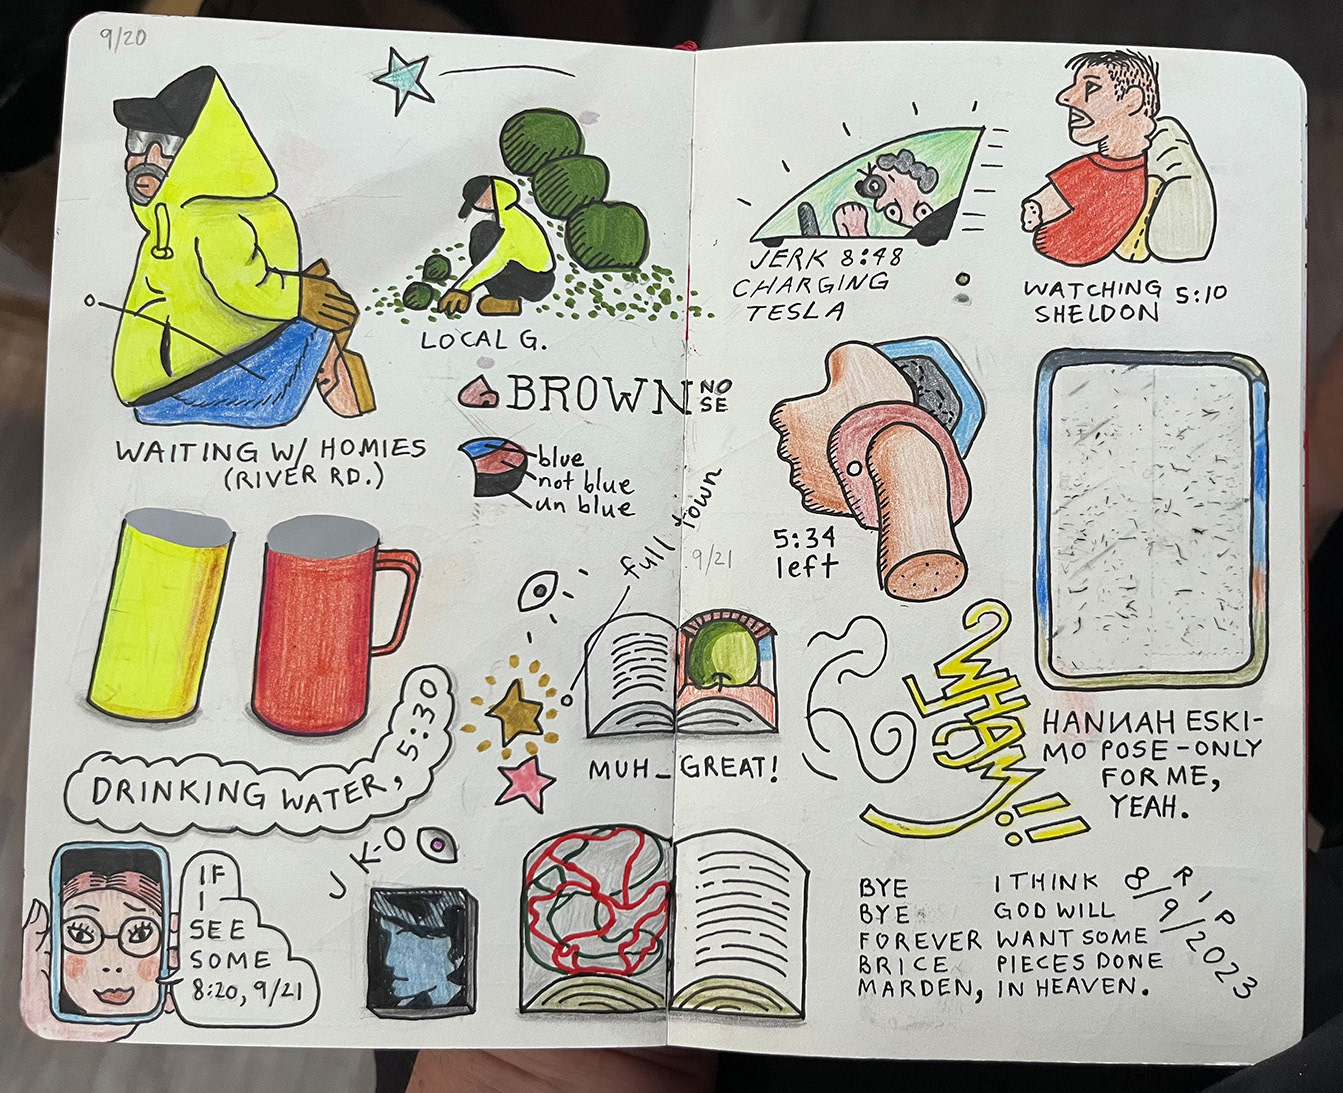 9/20
WAITING W/ HOMIES
(RIVER RD.)
LOCAL G.
BROWN NO
SE
blue
not blue
un blue
DRINKING WATER, 5:30
full town
MUH_GREAT!
J K-O
IF
I
SEE
SOME
8:20, 9/21
JERK 8:48
CHARGING
TESLA
WATCHING 5:10
SHELDON
9/21
5:34
left
WHAM!!
HANNAH ESKI-
MO POSE-ONLY
FOR ME,
YEAH.
BYE
BYE
FOREVER
BRICE
MARDEN,
I THINK
GOD WILL
WANT SOME
PIECES DONE
IN HEAVEN.
RIP
8/9/2023